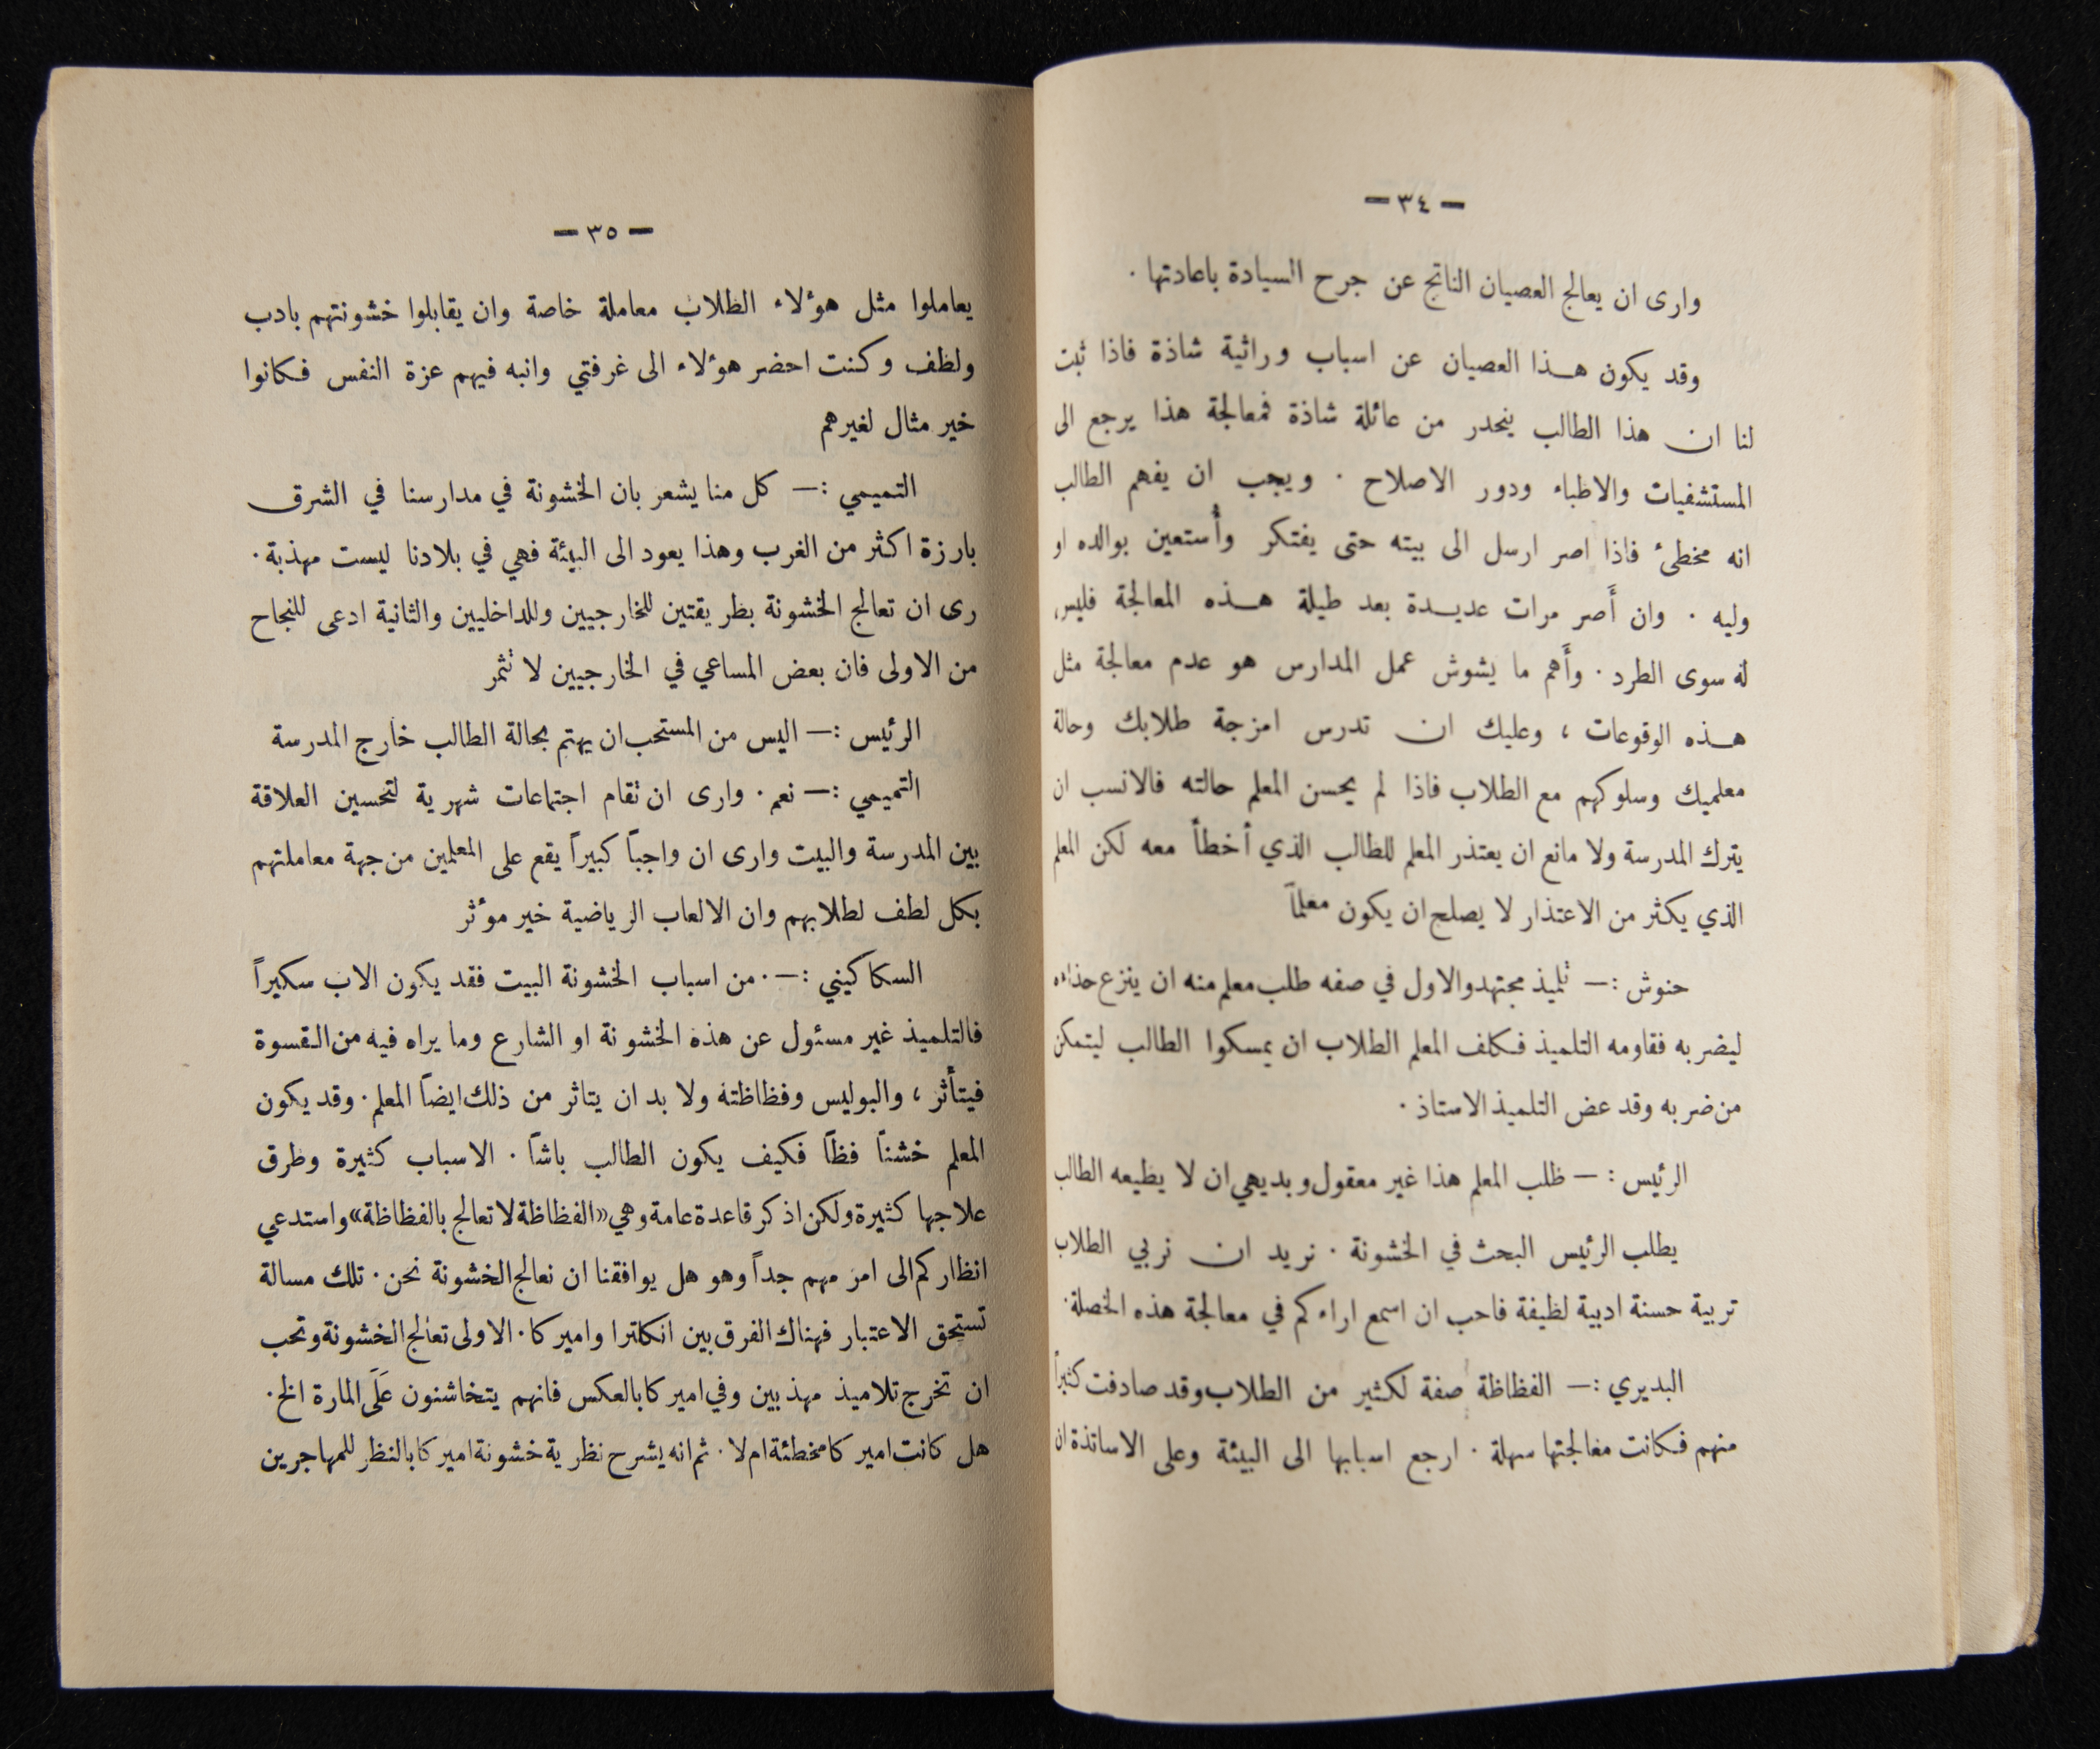 — ٣٤ —
وارى ان يعالج العصيان الناتج عن جرح السيادة باعادتها .
وقد يكون هذا العصيان عن اسباب وراثية شاذة فاذا ثبت
لنا ان هذا الطالب ينحدر من عائلة شاذة فمعالجة هذا يرجع الى
المستشفيات والاطباء ودور الاصلاح . ويجب ان يفهم الطالب
انه مخطئ فاذا اصر ارسل الى بيته حتى يفتكر وأستعين بوالده او
وليه . وان أَصر مرات عديدة بعد طيلة هذه المعالجة فليس
له سوى الطرد . وأَهم ما يشوش عمل المدارس هو عدم معالجة مثل
هذه الوقوعات ، وعليك ان تدرس امزجة طلابك وحالة
معلميك وسلوكهم مع الطلاب فاذا لم يحسن المعلم حالته فالانسب ان
يترك المدرسة ولا مانع ان يعتذر المعلم للطالب الذي أخطأ معه لكن المعلم
الذي يكثر من الاعتذار لا يصلح ان يكون معلماً
حنوش :— تلميذ مجتهد والاول في صفه طلب معلم منه ان ينزع حذاءه
ليضربه فقاومه التلميذ فكلف المعلم الطلاب ان يمسكوا الطالب ليتمكن
من ضربه وقد عض التلميذ الاستاذ .
الرئيس : — طلب المعلم هذا غير معقول وبديهي ان لا يطيعه الطالب
يطلب الرئيس البحث في الخشونة . نريد ان نربي الطلاب
تربية حسنة ادبية لطيفة فاحب ان اسمع اراءكم في معالجة هذه الخصلة .
البديري :— الفظاظة صفة لكثير من الطلاب وقد صادفت كثيراً
منهم فكانت معالجتها سهلة . ارجع اسبابها الى البيئة وعلى الاساتذة ان
— ٣٥ —
يعاملوا مثل هؤلاء الطلاب معاملة خاصة وان يقابلوا خشونتهم بادب
ولطف وكنت احضر هؤلاء الى غرفتي وانبه فيهم عزة النفس فكانوا
خير مثال لغيرهم
التميمي :— كل منا يشعر بان الخشونة في مدارسنا في الشرق
بارزة اكثر من الغرب وهذا يعود الى البيئة فهي في بلادنا ليست مهذبة .
رى ان تعالج الخشونة بطريقتين للخارجيين وللداخليين والثانية ادعى للنجاح
من الاولى فان بعض المساعي في الخارجيين لا تثمر
الرئيس :— اليس من المستحب ان يهتم بحالة الطالب خارج المدرسة
التميمي :— نعم . وارى ان تقام اجتماعات شهرية لتحسين العلاقة
بين المدرسة والبيت وارى ان واجباً كبيراً يقع على المعلمين من جهة معاملتهم
بكل لطف لطلابهم وان الالعاب الرياضية خير مؤثر
السكاكيني :— . من اسباب الخشونة البيت فقد يكون الاب سكيراً
فالتلميذ غير مسئول عن هذه الخشونة او الشارع وما يراه فيه من القسوة
فيتأثر ، والبوليس وفظاظته ولا بد ان يتاثر من ذلك ايضاً المعلم . وقد يكون
المعلم خشناً فظاً فكيف يكون الطالب باشاً . الاسباب كثيرة وطرق
علاجها كثيرة ولكن اذكر قاعدة عامة وهي «الفظاظة لا تعالج بالفظاظة» واستدعي
انظاركم الى امر مهم جداً وهو هل يوافقنا ان نعالج الخشونة نحن . تلك مسالة
تستحق الاعتبار فهناك الفرق بين انكلترا واميركا . الاولى تعالج الخشونة وتحب
ان تخرج تلاميذ مهذبين وفي اميركا بالعكس فانهم يتخاشنون عَلَى المارة الخ .
هل كانت اميركا مخطئة ام لا . ثم انه يشرح نظرية خشونة اميركا بالنظر للمهاجرين